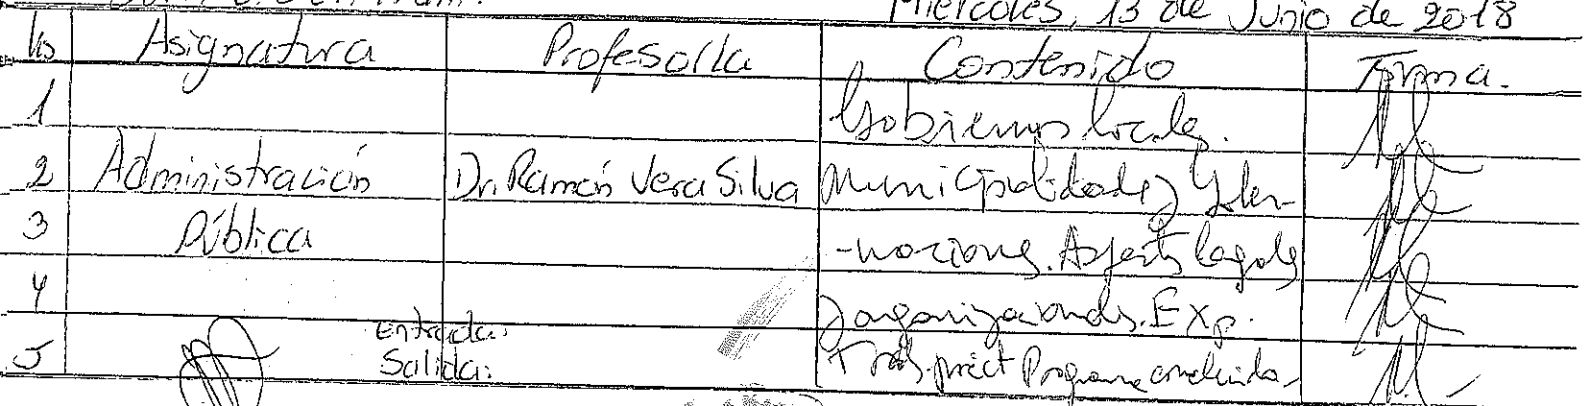 Miércoles, 13 de Junio de 2018
Hs Asignatura Profesor/la Contenido Firma.
1 Gobiernos locales.
2 Administración Dr. Ramón Vera Silva Municipalidades y Gober-
3 Pública -naciones. Aspects legales
4 y organizacionales. Exp.
Entrada:
5 Salida: Trab. práct Programa concluido